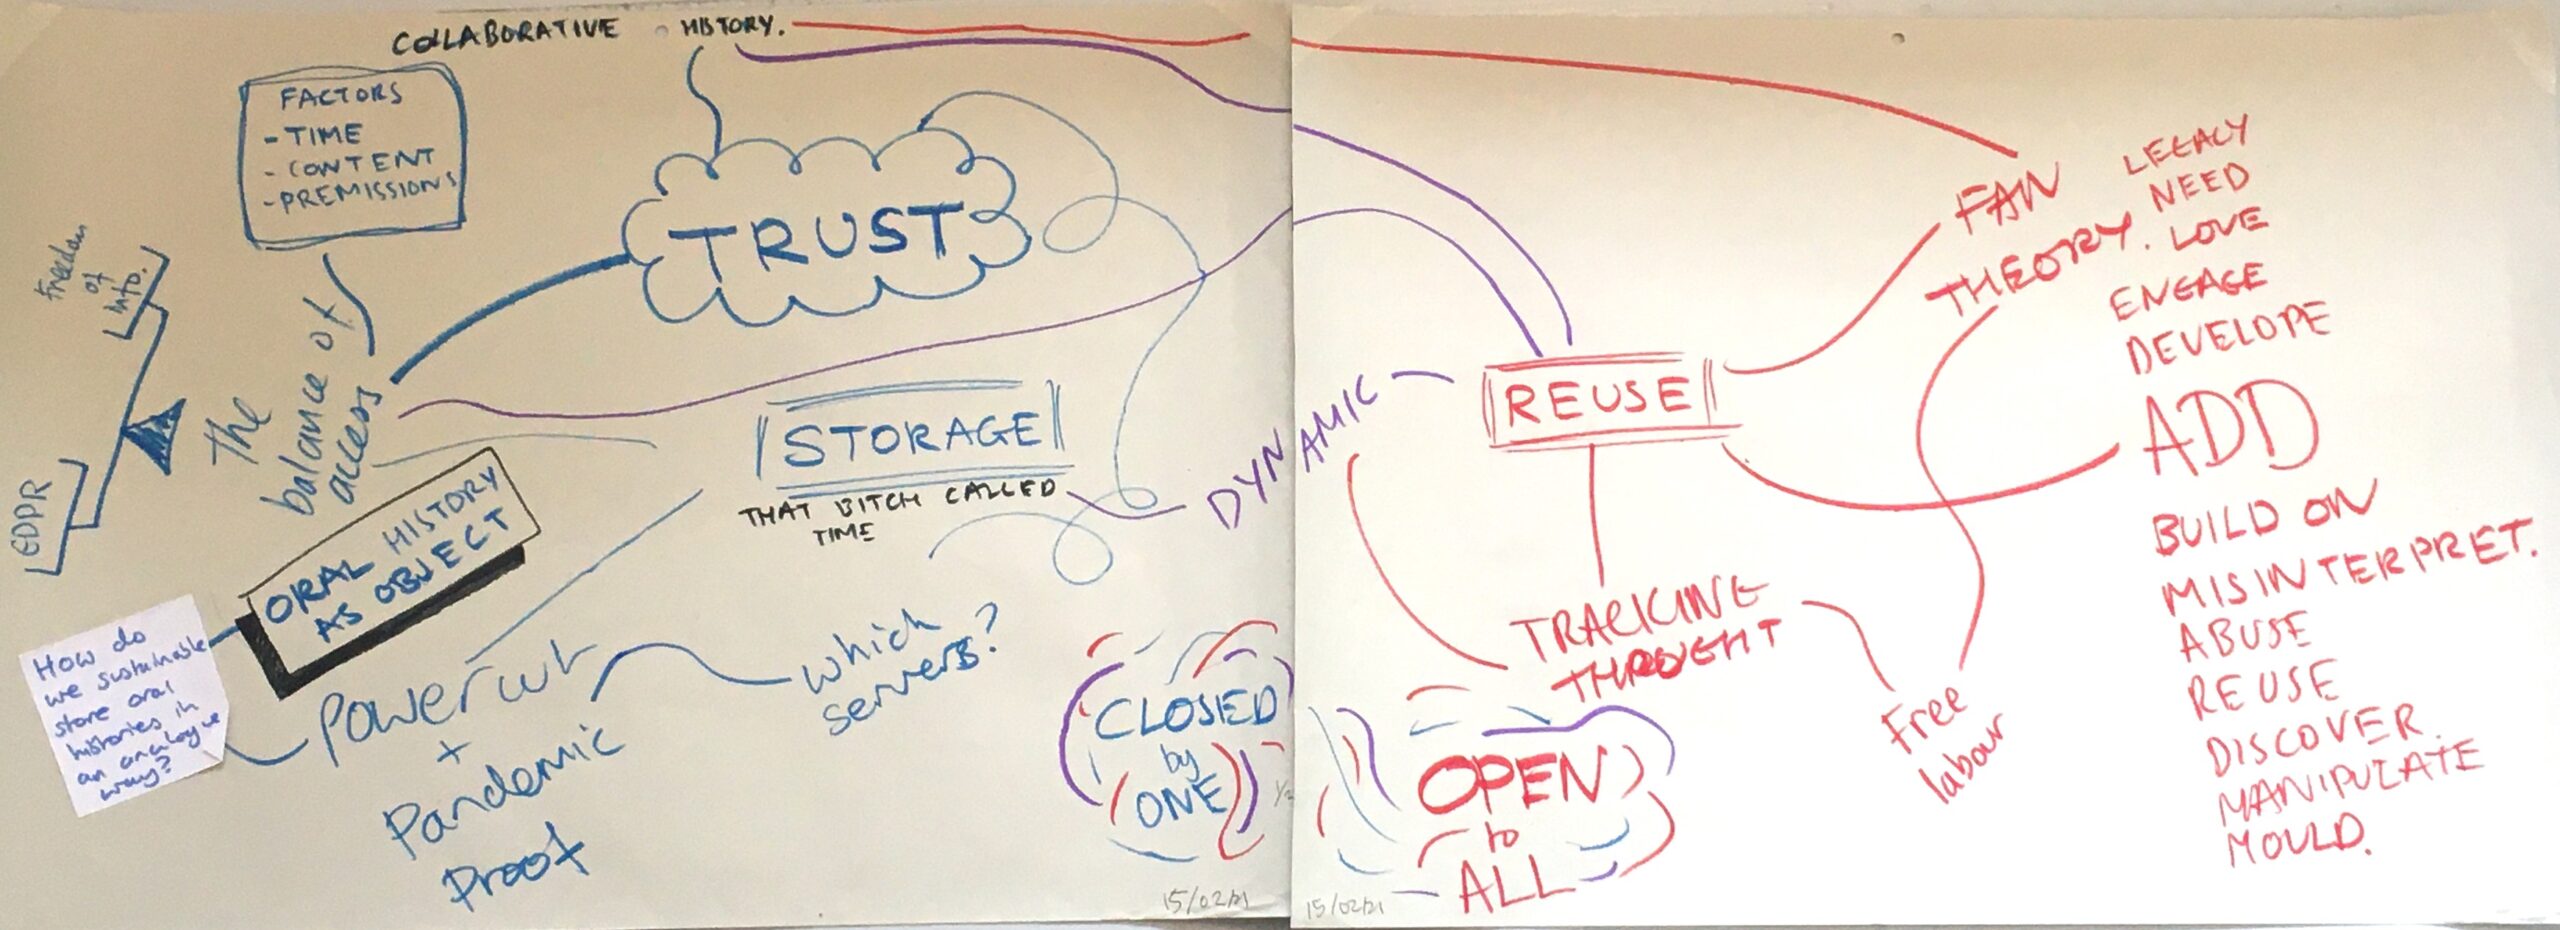 COLLABORATIVE HISTORY.
FACTORS
- TIME
- CONTENT
- PREMISSIONS
TRUST
Freedom
of
info.
GDPR
The
balance of
access
STORAGE
THAT BITCH CALLED
TIME
ORAL HISTORY
AS OBJECT
How do
we sustainable
store oral
histories in
an analogue
way?
Powercut
+
Pandemic
Proof
which
servers?
CLOSED
by
ONE
15/02/21
DYNAMIC
REUSE
FAN
THEORY.
TRACKING
THROUGHT
Free
labour
OPEN
to
ALL
15/02/21
LEGACY
NEED
LOVE
ENGAGE
DEVELOPE
ADD
BUILD ON
MISINTERPRET.
ABUSE
REUSE
DISCOVER
MANIPULATE
MOULD.